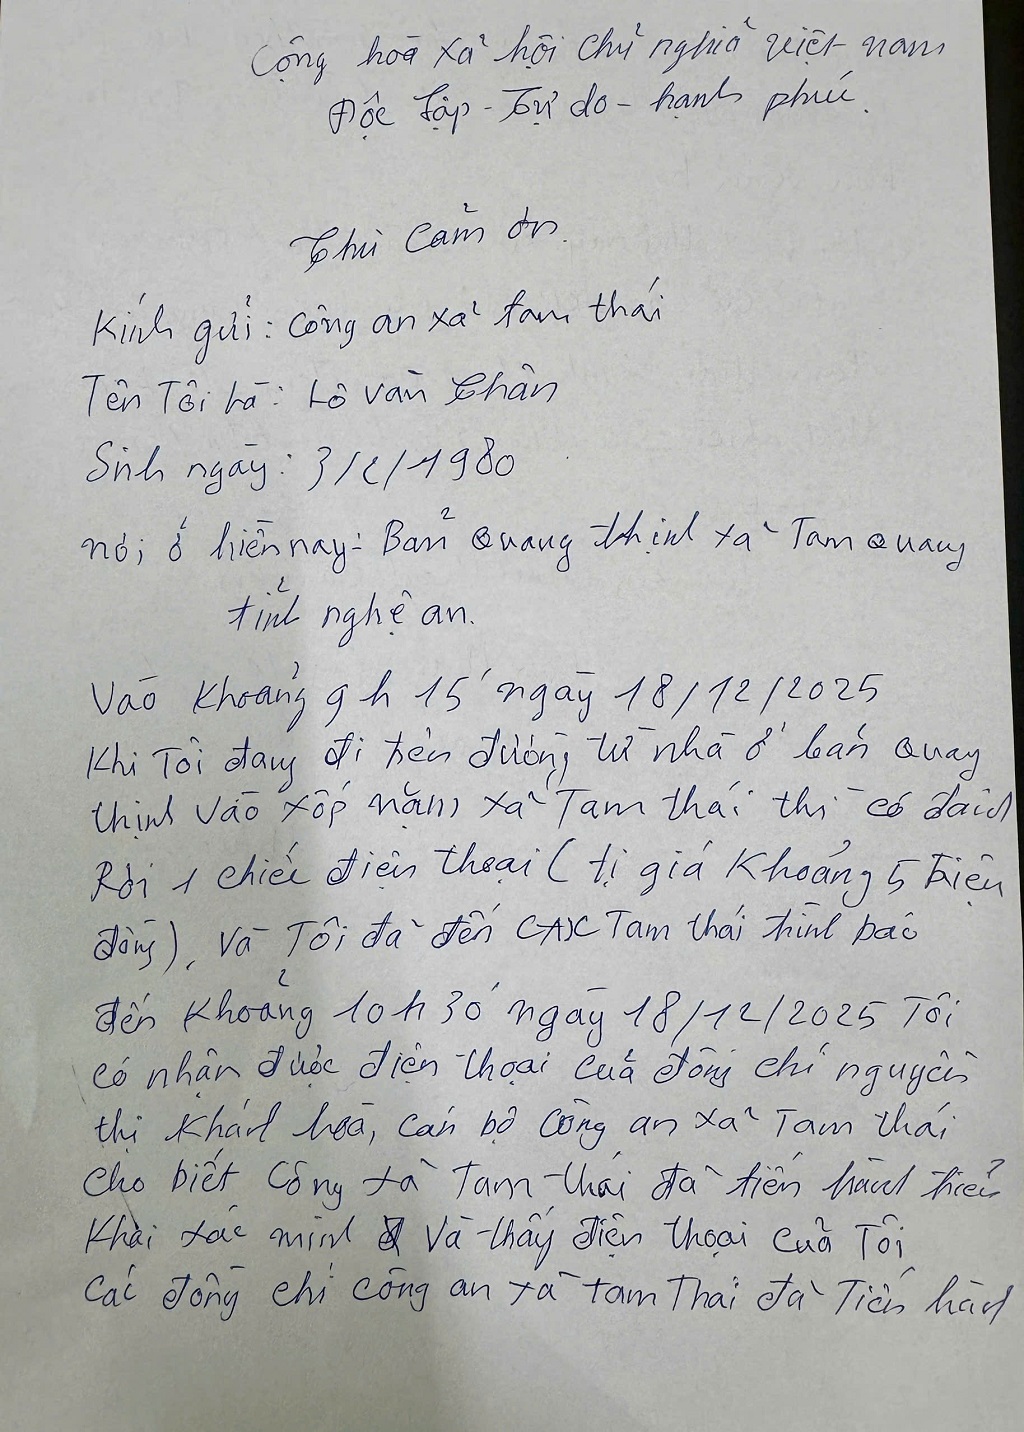 Cộng hoà xả hội chủ nghiả việt nam
Độc lập - Tự do - hạnh phúc.
Thư Cảm ơn.
Kính gửi: Công an xả tam thái
Tên Tôi Là: Lô văn Chân
Sinh ngày: 3/2/1980
nơi ở hiện nay: Bản Quang thịnh xả Tam Quang
tỉnh nghệ an.
Vào khoảng 9h 15' ngày 18/12/2025
Khi Tôi đang đi trên đường từ nhà ở bản Quang
thịnh vào xốp nặm xả Tam thái thì có đánh
Rơi 1 chiếc điện thoại (trị giá Khoảng 5 triệu
đồng), và Tôi đã đến CAX Tam thái trình báo
đến khoảng 10h30' ngày 18/12/2025 Tôi
có nhận được điện thoại của đồng chí nguyễn
thị Khánh hoà, cán bộ Công an xả Tam thái
cho biết Công xả Tam thái đã tiến hành triển
khai xác minh và thấy điện thoại của Tôi
các đồng chí công an xả tam Thái đã Tiến hành